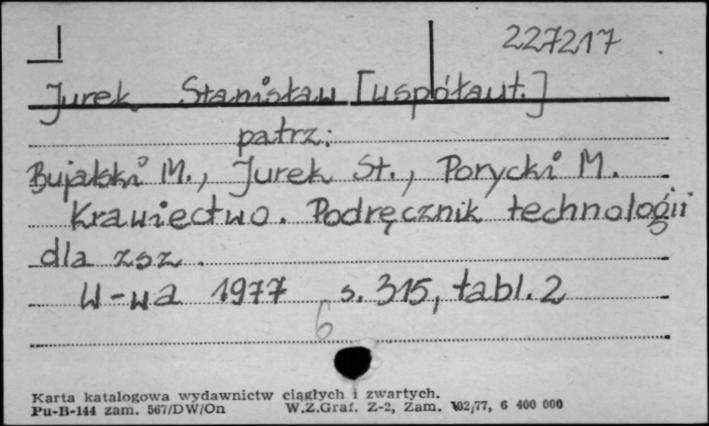 227217
Jurek Stanisław [współaut.]
patrz:
Bujalski M., Jurek St., Porycki M.
Krawiectwo. Podręcznik technologii
dla zsz.
W-wa 1977 s. 315, tabl. 2
6
Karta katalogowa wydawnictw ciągłych i zwartych.
Pu-B-144 zam. 567/DW/On W.Z.Graf. Z-2, Zam. 102/77, 6 400 000